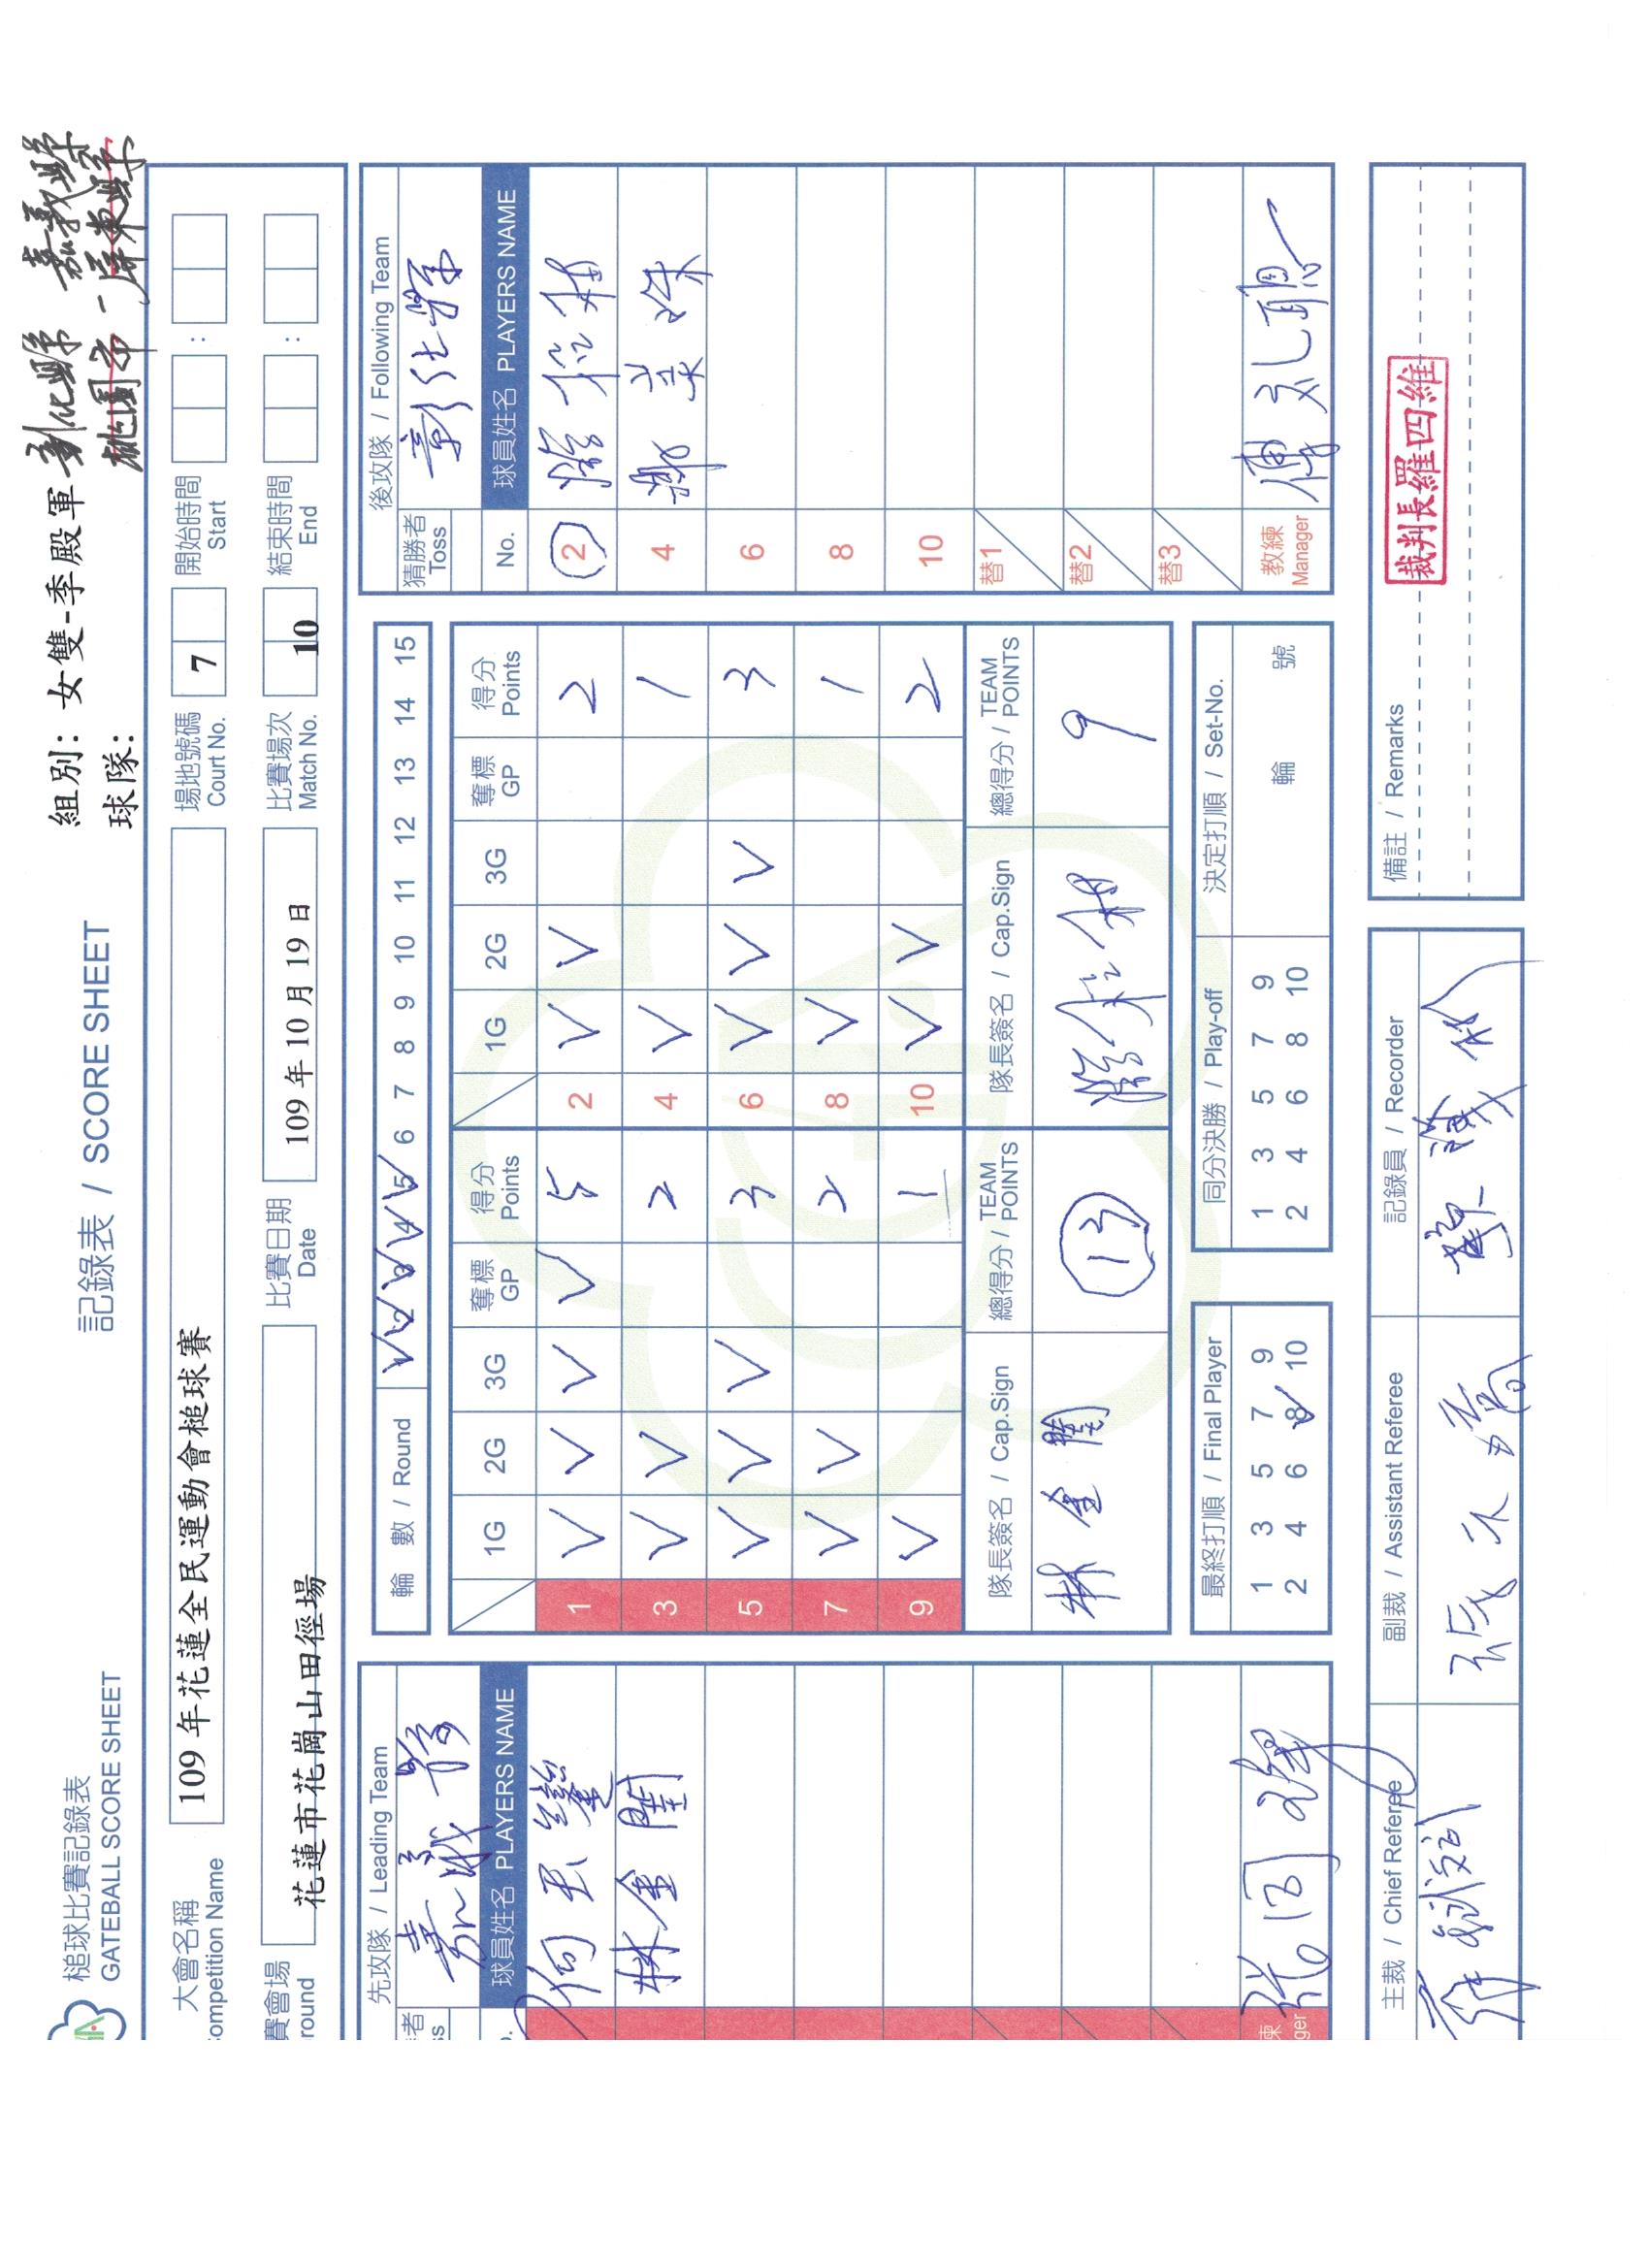 組別: 女雙-季殿軍 彰化縣 嘉義縣
球隊: 桃園市 - 屏東縣
槌球比賽記錄表
GATEBALL SCORE SHEET
記錄表 / SCORE SHEET
大會名稱
ompetition Name
109 年花蓮全民運動會槌球賽
場地號碼
Court No.
7
開始時間
Start
:
賽會場
round
花蓮市花崗山田徑場
比賽日期
Date
109 年 10 月 19 日
比賽場次
Match No.
10
結束時間
End
:
者
ss
先攻隊 / Leading Team
嘉義縣
球員姓名 PLAYERS NAME
林金
練
ger
輪 數 / Round
1 2 3 4 5 6 7 8 9 10 11 12 13 14 15
1G 2G 3G 奪標 GP 得分 Points 1G 2G 3G 奪標 GP 得分 Points
1 V V V V 5 2 V V 2
3 V V 2 4 V 1
5 V V V 3 6 V V V 3
7 V V 2 8 V 1
9 V 1 10 V V 2
隊長簽名 / Cap.Sign
總得分 / TEAM POINTS
隊長簽名 / Cap.Sign
總得分 / TEAM POINTS
林金
13
9
最終打順 / Final Player
1 3 5 7 9
2 4 6 8 10
同分決勝 / Play-off
1 3 5 7 9
2 4 6 8 10
決定打順 / Set-No.
輪 號
猜勝者
Toss
後攻隊 / Following Team
彰化縣
No.
球員姓名 PLAYERS NAME
2
4
6
8
10
替1
替2
替3
教練
Manager
主裁 / Chief Referee
副裁 / Assistant Referee
記錄員 / Recorder
備註 / Remarks
裁判長羅四維